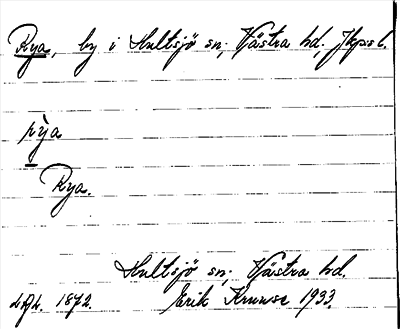 Rya, by i Hultsjö sn, Västra hd, Jkps l.
rỳa
Rya.
Hultsjö sn, Västra hd.
Erik Kruuse 1933.
1872.